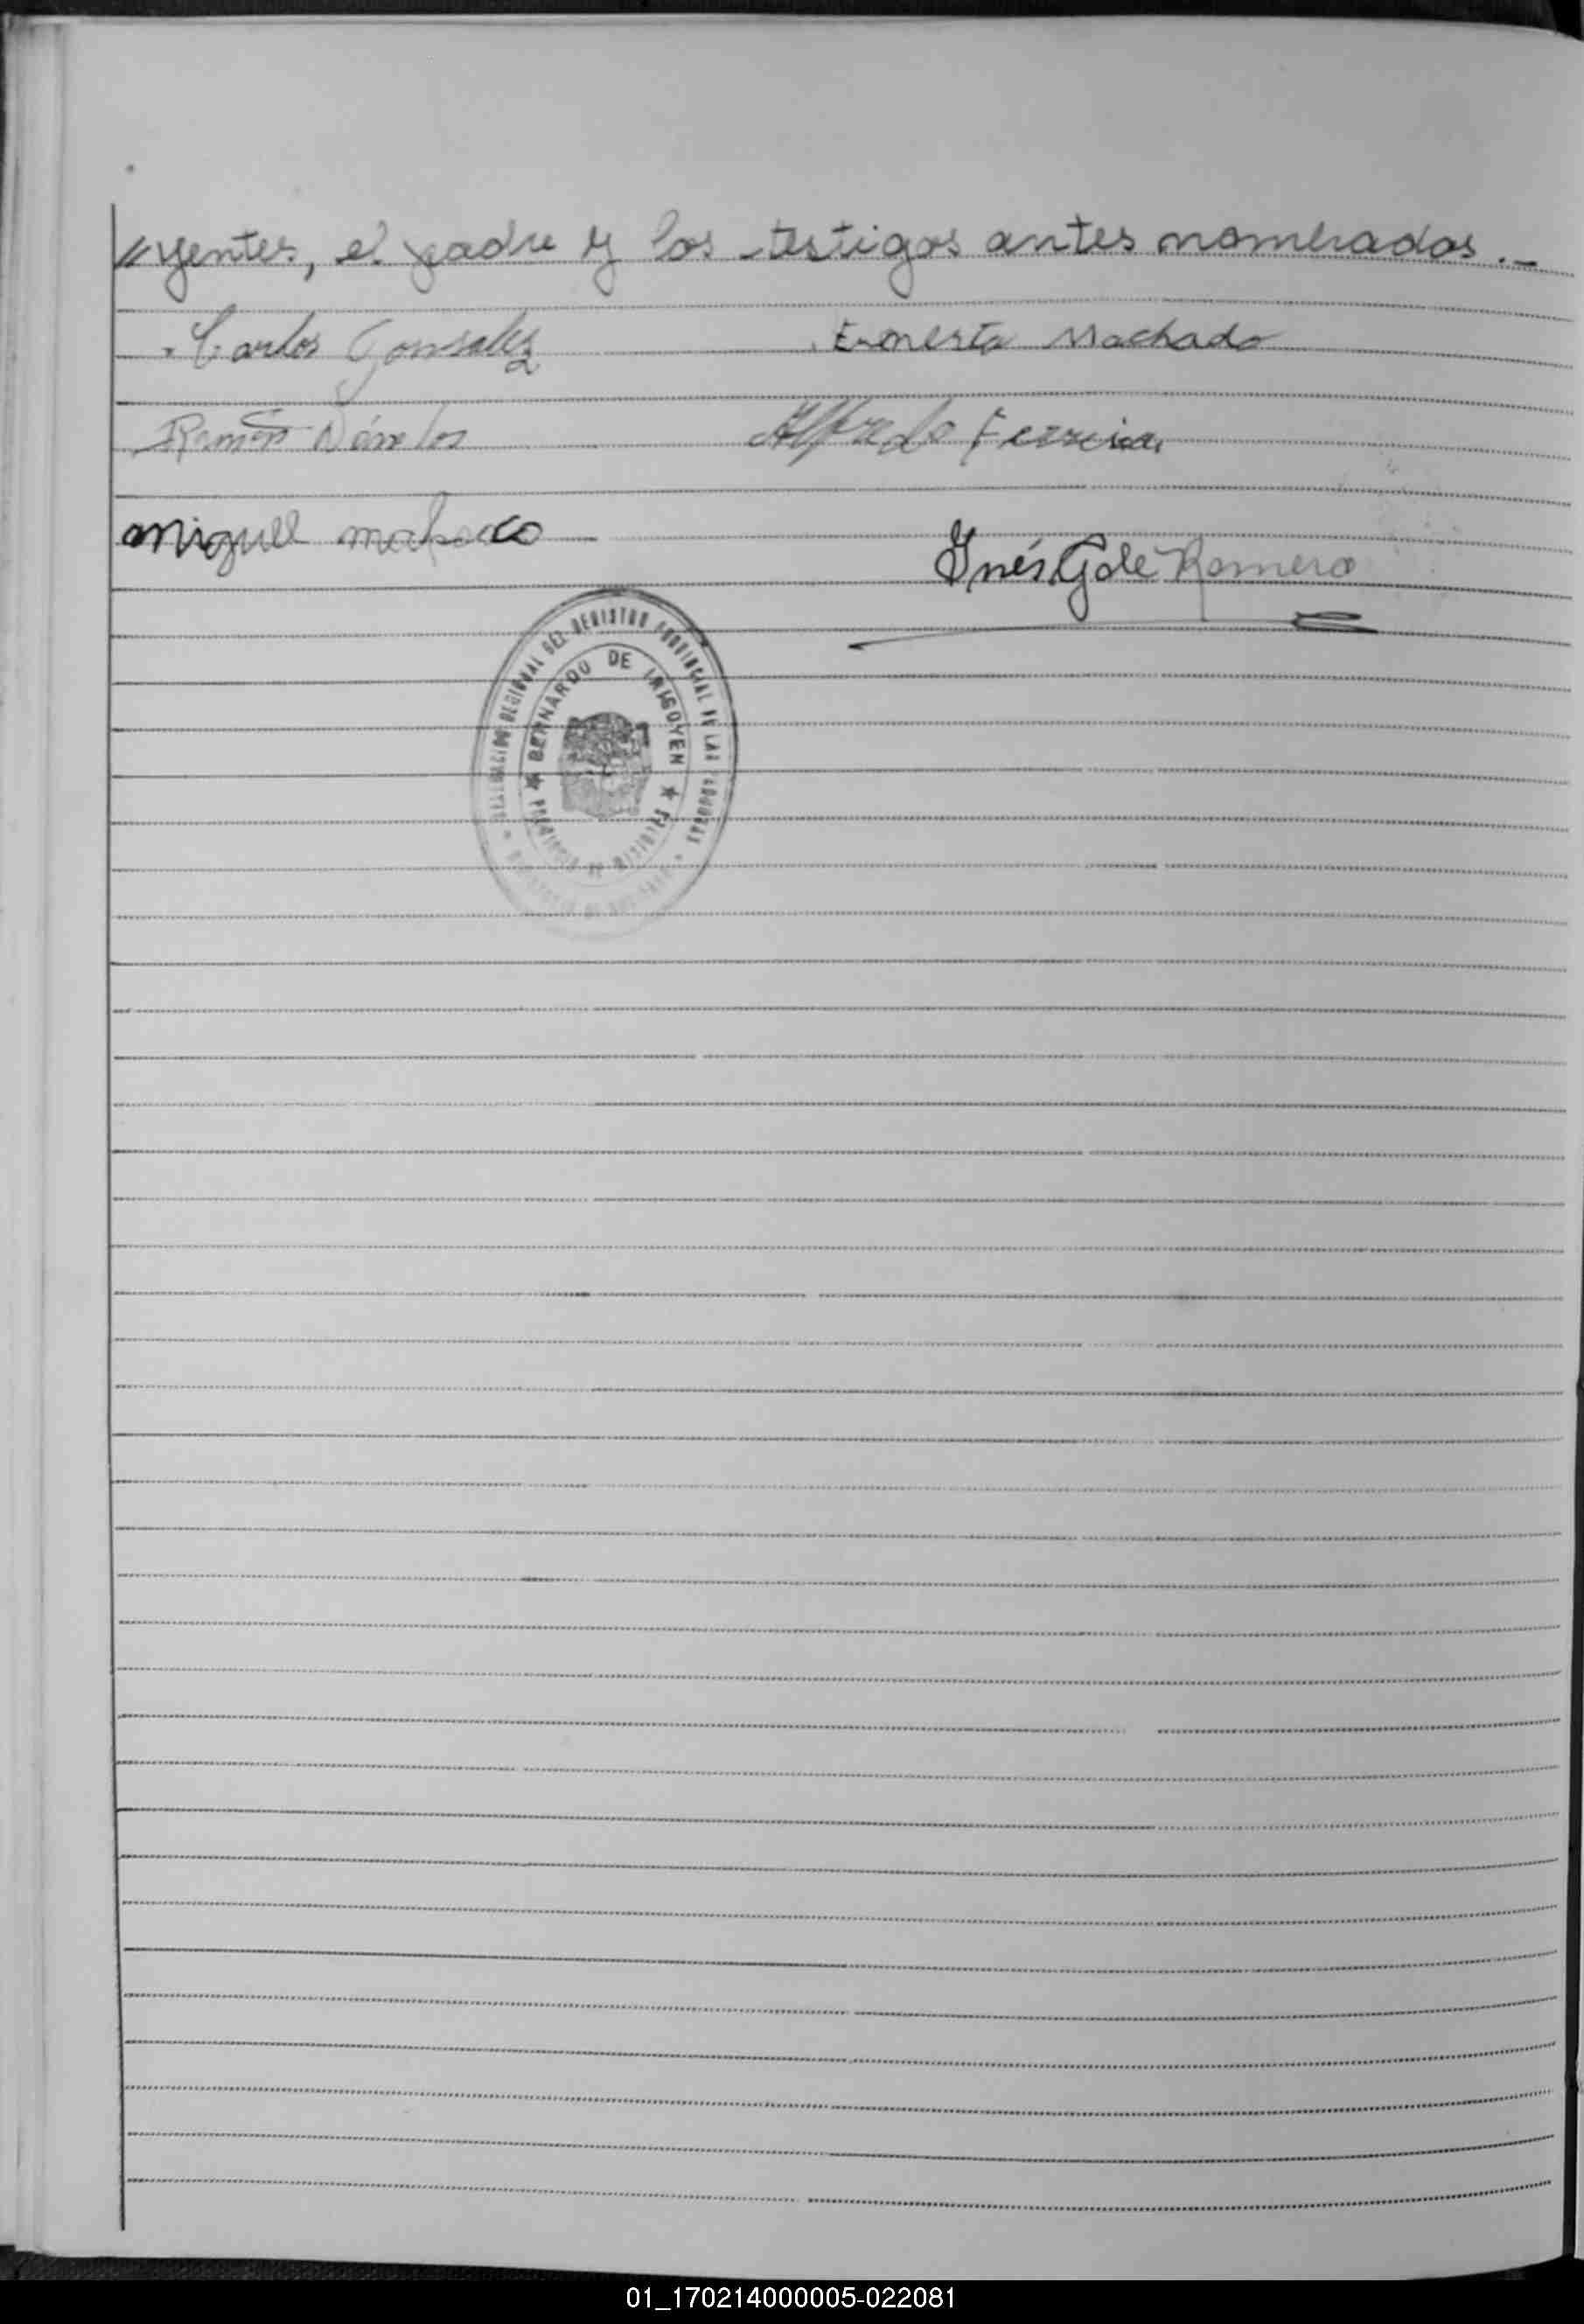 //yentes, el padre y los testigos antes nombrados.-
Carlos Gonsalez
Ernesta Machado
Ramón
Alfredo Ferreira
Miguel
Inés G. de Romero
DELEGACION REGIONAL DEL REGISTRO PROVINCIAL DE LAS PERSONAS
BERNARDO DE IRIGOYEN
PROVINCIA DE MISIONES
01_170214000005-022081